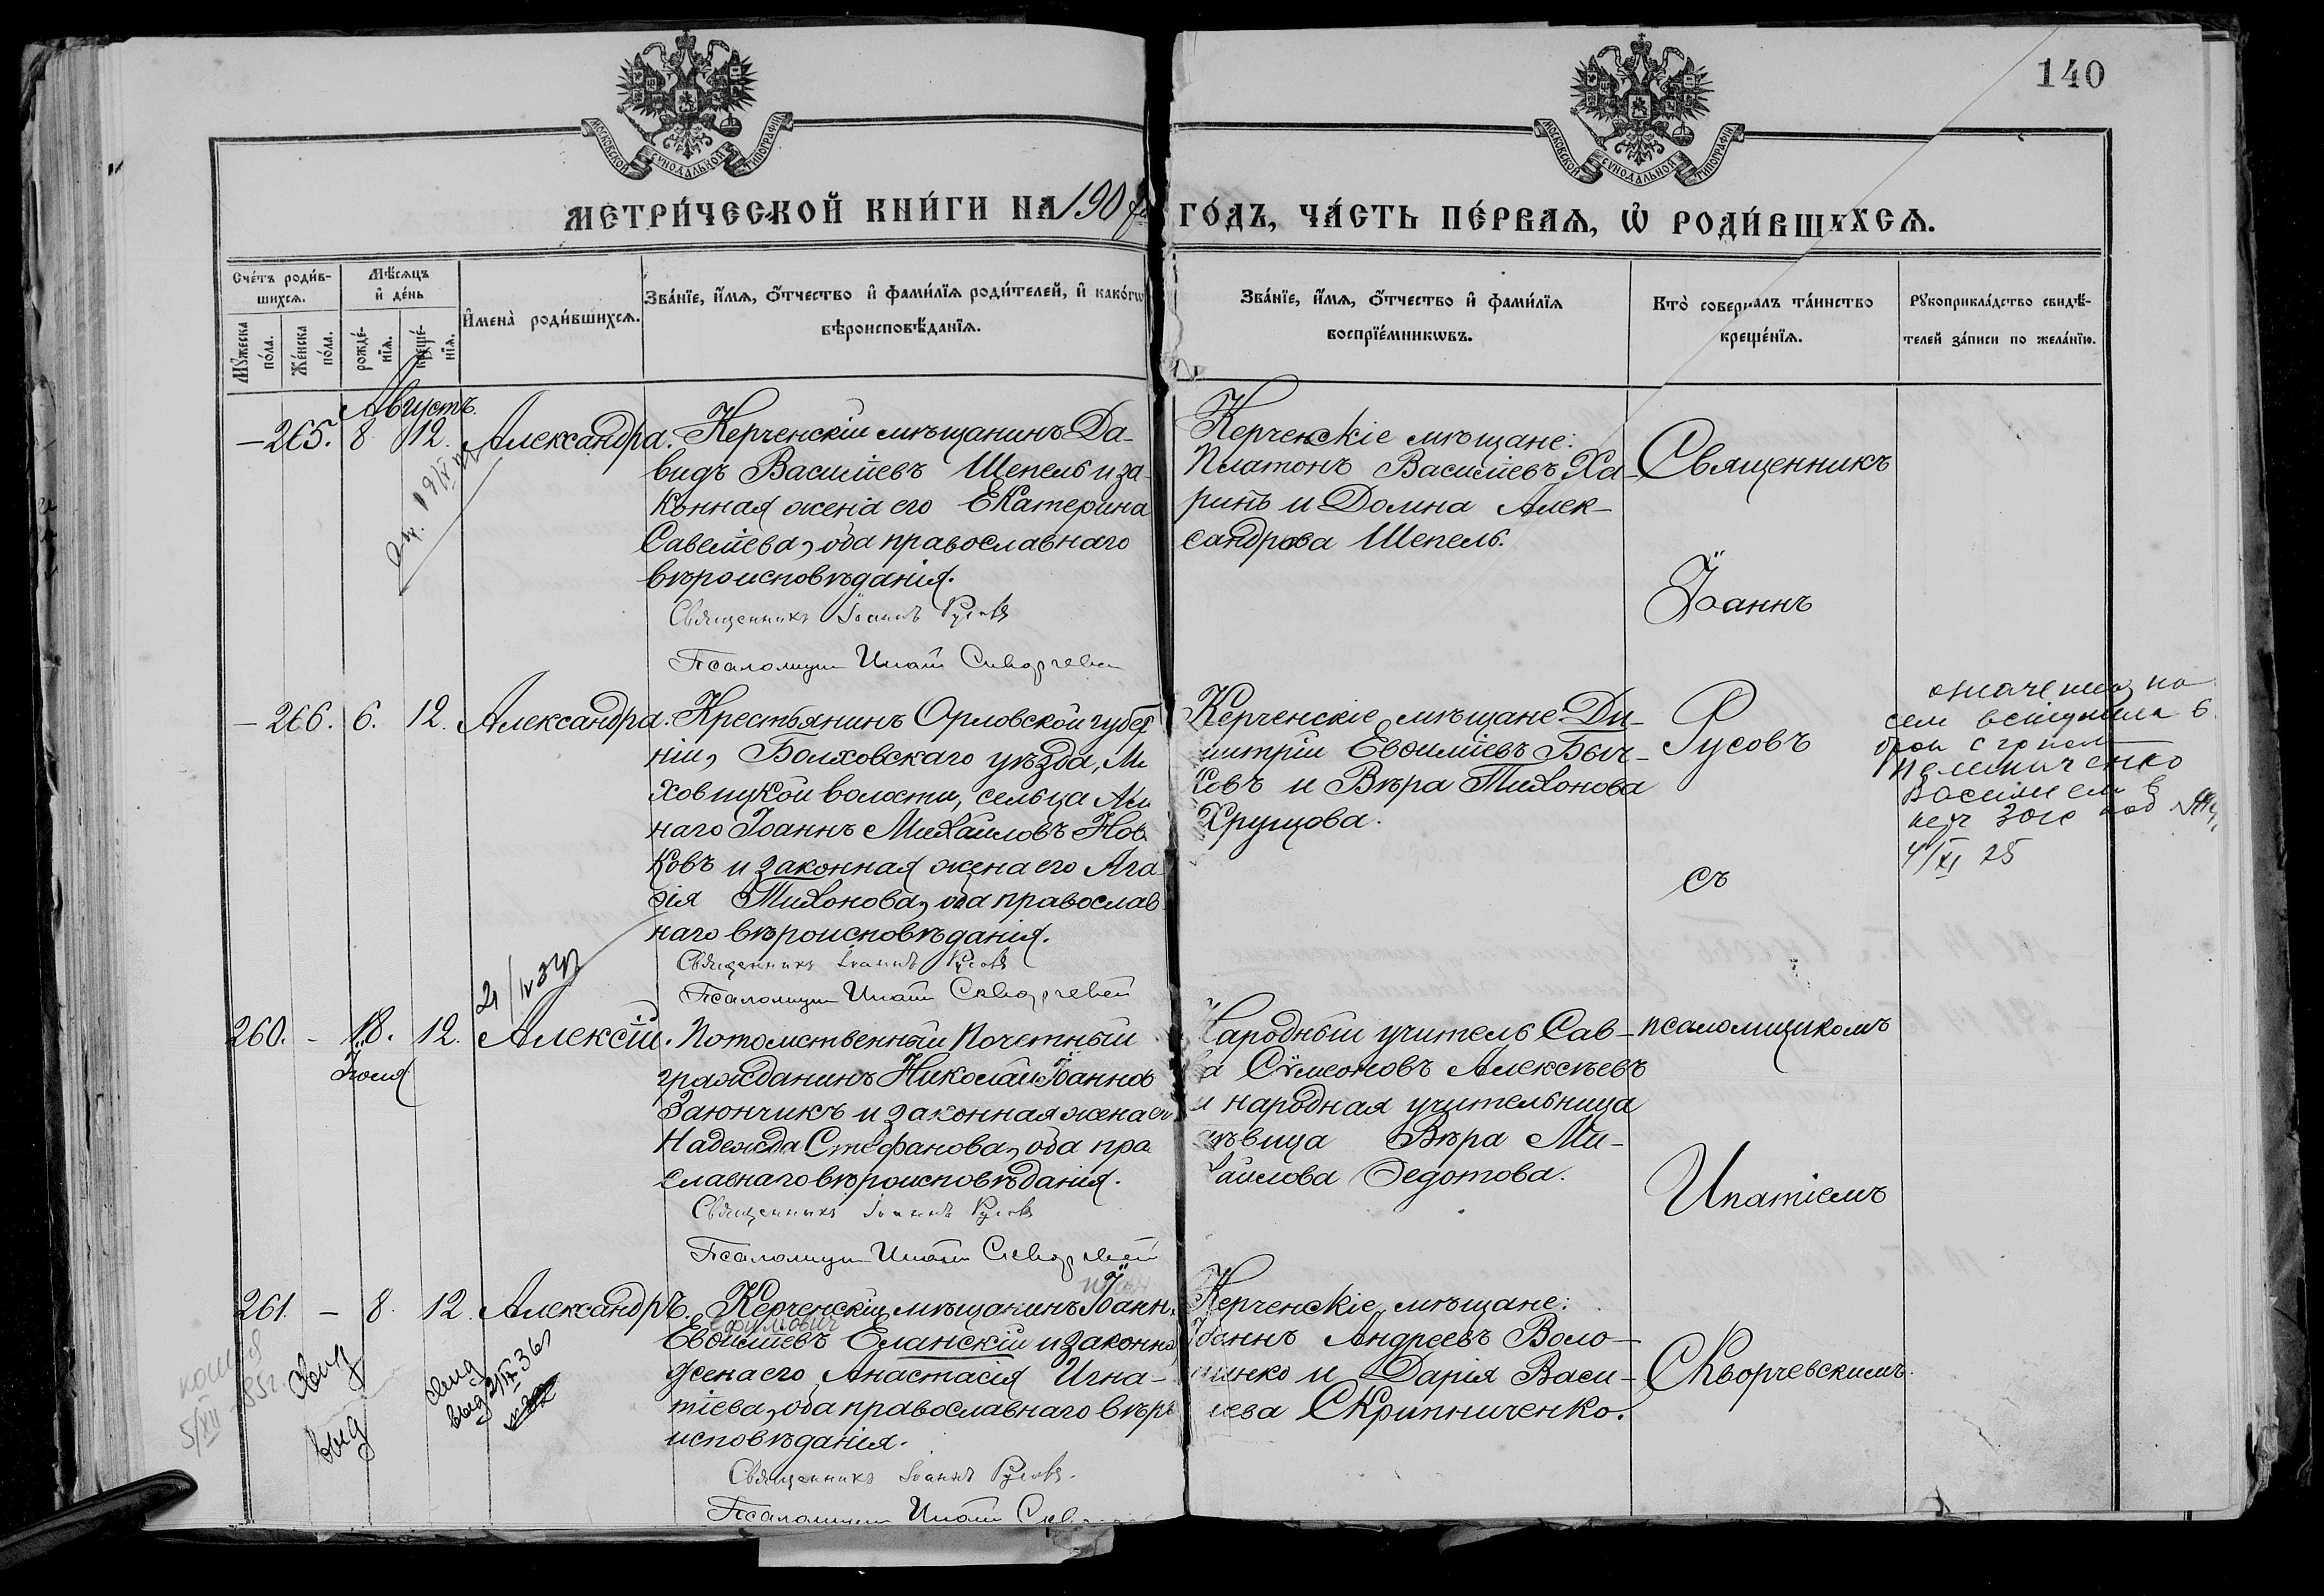 140
МОСКОВСКОЙ СѴНОДАЛЬНОЙ ТИПОГРАФІИ
МОСКОВСКОЙ СѴНОДАЛЬНОЙ ТИПОГРАФІИ
МЕТРИ́ЧЕСКОЙ КНИ́ГИ НА 190
ГО́ДЪ, ЧА́СТЬ ПЕ́РВАѦ, Ѡ҆ РОДИ́ВШИХСѦ.
Сче́тъ роди́в-
шихсѧ.
Мꙋ́жеска по́ла.
Же́нска по́ла.
Мѣ́сѧцъ
и҆ де́нь
рожде́-
нїѧ.
креще́-
нїѧ.
И҆мена̀ роди́вшихсѧ.
Зва́нїе, и҆́мѧ, ѻ҆́тчество и҆ фами́лїѧ роди́телей, и҆ како́гѡ
вѣроисповѣ́данїѧ.
Зва́нїе, и҆́мѧ, ѻ҆́тчество и҆ фами́лїѧ
воспрїе́мникѡвъ.
Кто̀ соверша́лъ та́инство
креще́нїѧ.
Рꙋкоприкла́дство свидѣ́-
телей за́писи по жела́нїю.
Августъ.
– 265. 8 12. Александра.
Керченскій мѣщанинъ Да-
видъ Василіевъ Шепель и за-
конная жена его Екатерина
Савеліева, оба православнаго
вѣроисповѣданія.
Священникъ Іоаннъ Русовъ
Псаломщик Ипатій Скворчевскій
Керченскіе мѣщане:
Платонъ Василіевъ Ха-
ринъ и Домна Алек-
сандрова Шепель.
Священникъ
Іоаннъ
– 266. 6. 12. Александра.
Крестьянинъ Орловской губер
ніи, Болховскаго уѣзда,
ховицкой волости, сельца
наго Іоаннъ Михаиловъ Нов
ковъ и законная жена его Ага
ѳія Тихонова, оба православ
наго вѣроисповѣданія.
Священникъ Іоаннъ Русовъ
Псаломщик Ипатій Скворчевскій
Керченскіе мѣщане: Ди-
митрій Евѳиміевъ Быч-
ковъ и Вѣра Тихонова
Хрущова.
Русовъ
съ
сем вступила в
брак с гр
Василием в
керч загс под №
4/XI 25
260. – 18. 12. Алексій.
Іюля
Потомственный Почетный
гражданинъ Николай Іоаннов
Заюнчикъ и законная жена его
Надежда Стефанова, оба пра
славнаго вѣроисповѣданія.
Священникъ Іоаннъ Русовъ
Псаломщик Ипатій Скворчевскій
Народный учитель Сав-
ва Сѵмеоновъ Алексѣевъ
и народная учительница
дѣвица Вѣра Ми-
хаилова Ѳедотова.
псаломщикомъ
Ипатіемъ
261. – 8. 12. Александръ.
Керченскій мѣщанинъ Іоанн
Ефимович
Евѳиміевъ Еланскій и законна
жена его Анастасія Игна-
тіева, оба православнаго вѣро
исповѣданія.
Священникъ Іоаннъ Русовъ.
Псаломщик Ипатій
Керченскіе мѣщане:
Іоаннъ Андреевъ Воло-
шинко и Дарія Васи-
лева Скрипниченко.
Скворчевскимъ.
копия
5/XII 35г
Свид
выд
свид
выд 2/IX 36г